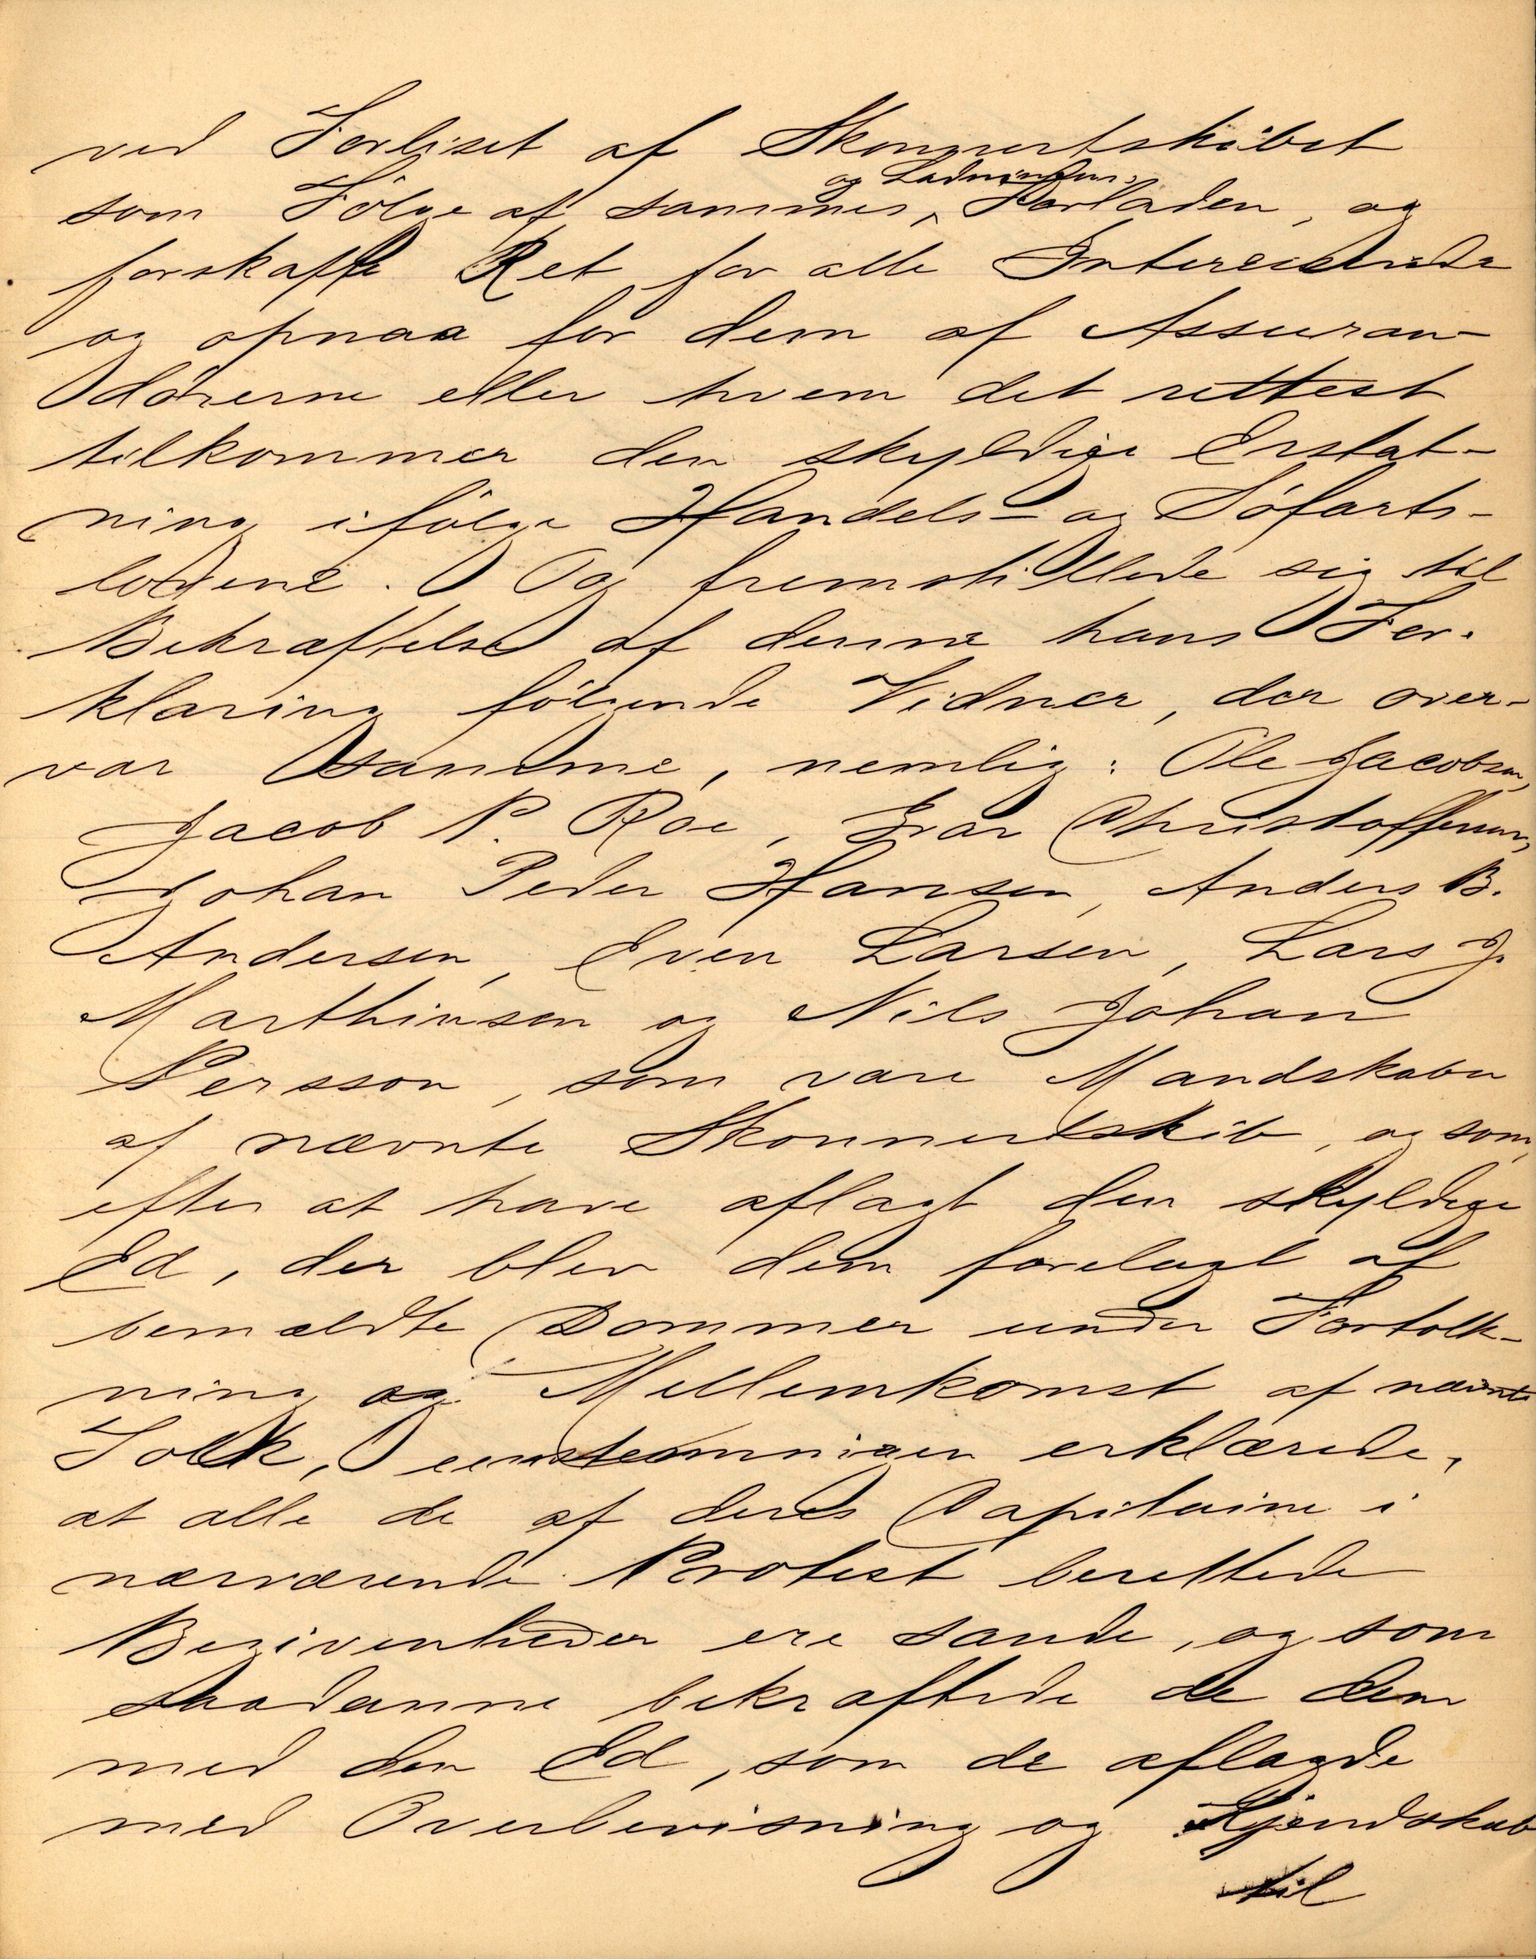 ved Forliset af Skonnertskibet
og Ladningens
som Følge af sammes, Forladen, og
forskaffe Ret for alle Interesserede
og opnaa for dem af Assuran-
dörerne eller hvem det rettest
tilkommer den skyldige Erstat-
ning ifölge Handels- og Söfarts-
lovene. Og fremstillede sig til
Bekræftelse af denne hans For-
klaring fölgende Vidner, der over-
var samme, nemlig: Ole Jacobsen,
Jacob P. Roe, Ivar Christoffersen,
Johan Peder Hansen, Anders B.
Andersen, Even Larsen, Lars J.
Marthinsen og Nils Johan
Persson, som vare Mandskaber
af nævnte Skonnertskib, og som,
efter at have aflagt den skyldige
Ed, der blev dem forelagt af
bemældte Dommer under Fortolk-
ning og Mellemkomst af nævnte
Tolk, eenstemmigen erklærede,
at alle de af deres Capitaine i
nærværende Protest berettede
Begivenheder ere sande, og som
saadanne bekræftede de dem
med den Ed, som de aflagde
med Overbevisning og Kjendskab
til